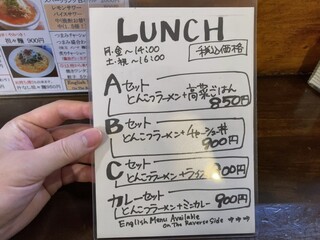 スパークリング
レモンサワー
バイスサワー
担々麺 900円
LUNCH
月-金～14:00
土・祝～16:00
税込価格
Aセット
とんこつラーメン+高菜ごはん
850円
Bセット
とんこつラーメン+チャーシュー丼
900円
Cセット
とんこつラーメン+ライス
00円
カレーセット
とんこつラーメン+ミニカレー 900円
English Menu Available
On The Reverse Side